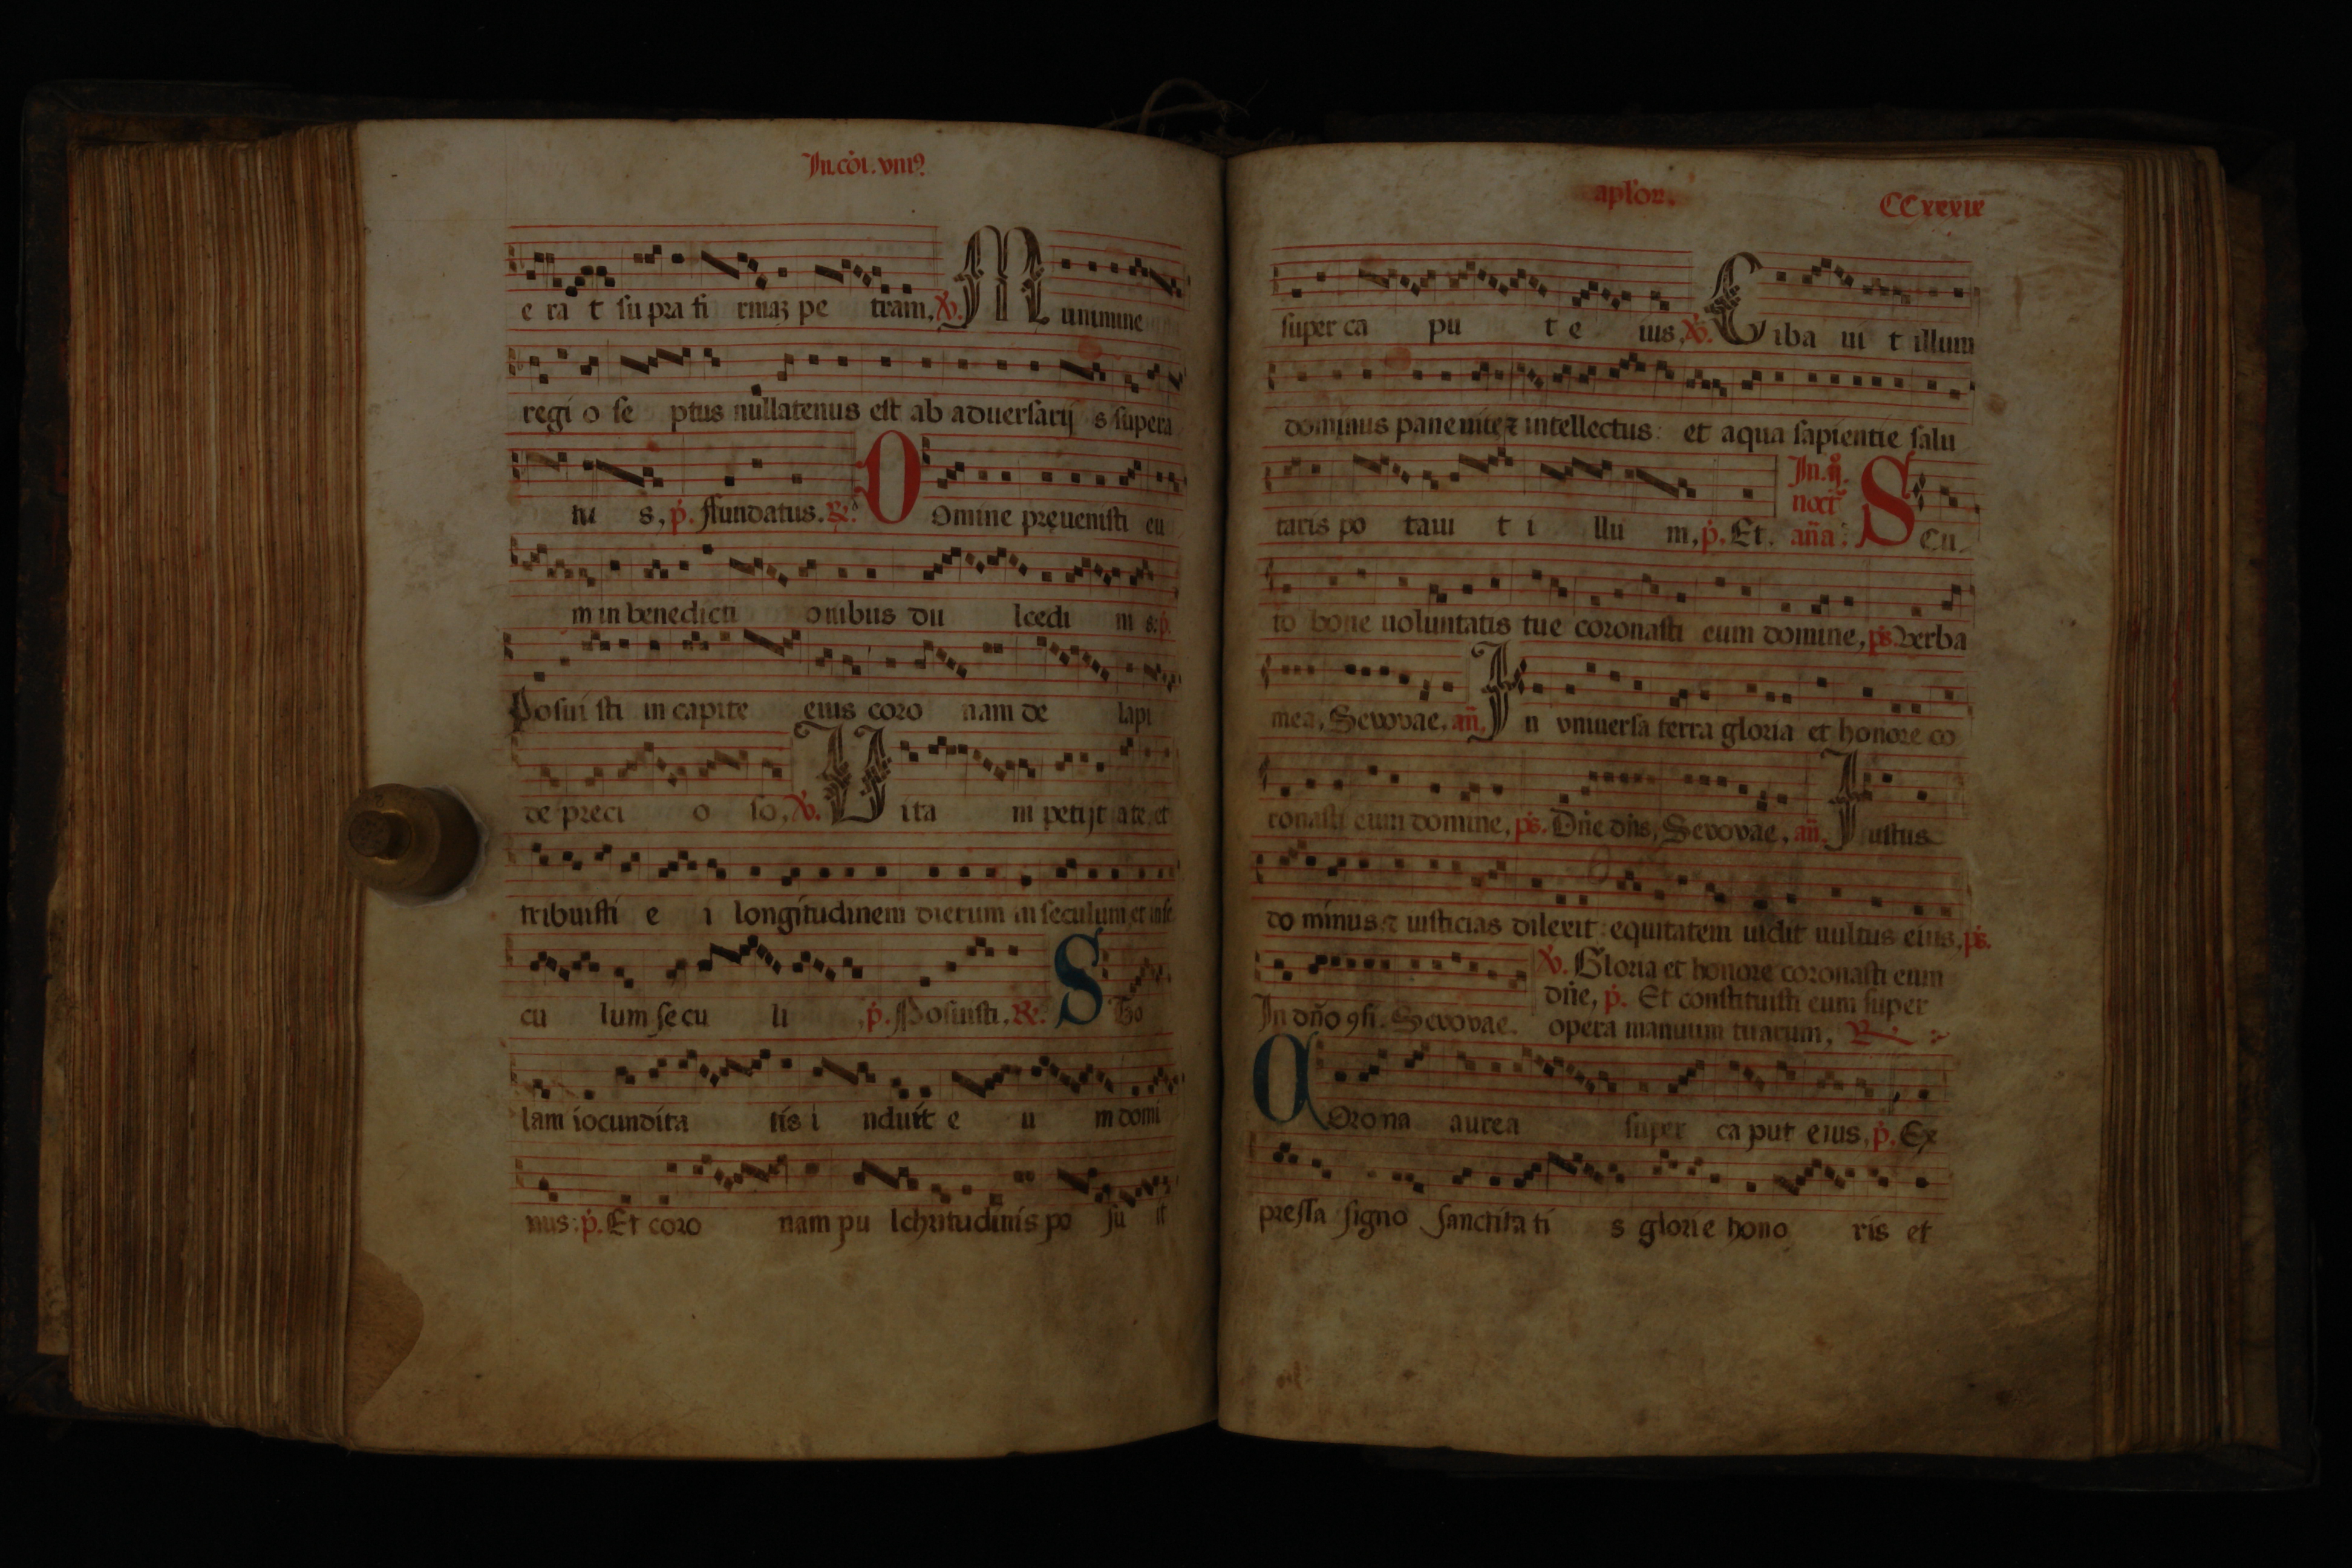 In. cōi. vniꝰ
e ra t su pra fi rmaꝫ pe tram, ℣. M unimine
regi o se ptus nullatenus est ab aduersarij s supera
tu s, p̄. ffundatus. ℟. D Omine preuenisti eu
m in benedicti onibus du lcedi ni s: p̄.
Posui sti in capite eius coro nam de lapi
de preci o so, ℣. V ita m petijt a te, et
tribuisti e i longitudinem dierum in seculum, et in se
cu lum se cu li , p̄. Posuisti. ℟. S To
lam iocundita tis i nduit e u m domi
nus: p̄. Et coro nam pu lchritudinis po su it
apl'or. CCxxxix
super ca pu t e ius, ℣. C iba ui t illum
dominus pane uite ⁊ intellectus: et aqua sapientie salu
taris po taui t i llu m, p̄. Et. In. ij. noct̄ an̄a: S Cu
to bone uoluntatis tue coronasti eum domine, ps. Verba
mea, Seuouae, an̄. I n vniuersa terra gloria et honore co
ronasti eum domine, ps. Dn̄e dn̄s, Seuouae, an̄. I ustus
do minus ⁊ iusticias dilexit: equitatem uidit uultus eius, ps.
In dn̄o ꝯfi. Seuouae.
℣. Gloria et honore coronasti eum
dn̄e, p̄. Et constituisti eum super
opera manuum tuarum, ℟.
C Orona aurea super ca put eius, p̄. Ex
pressa signo sanctita ti s glorie hono ris et